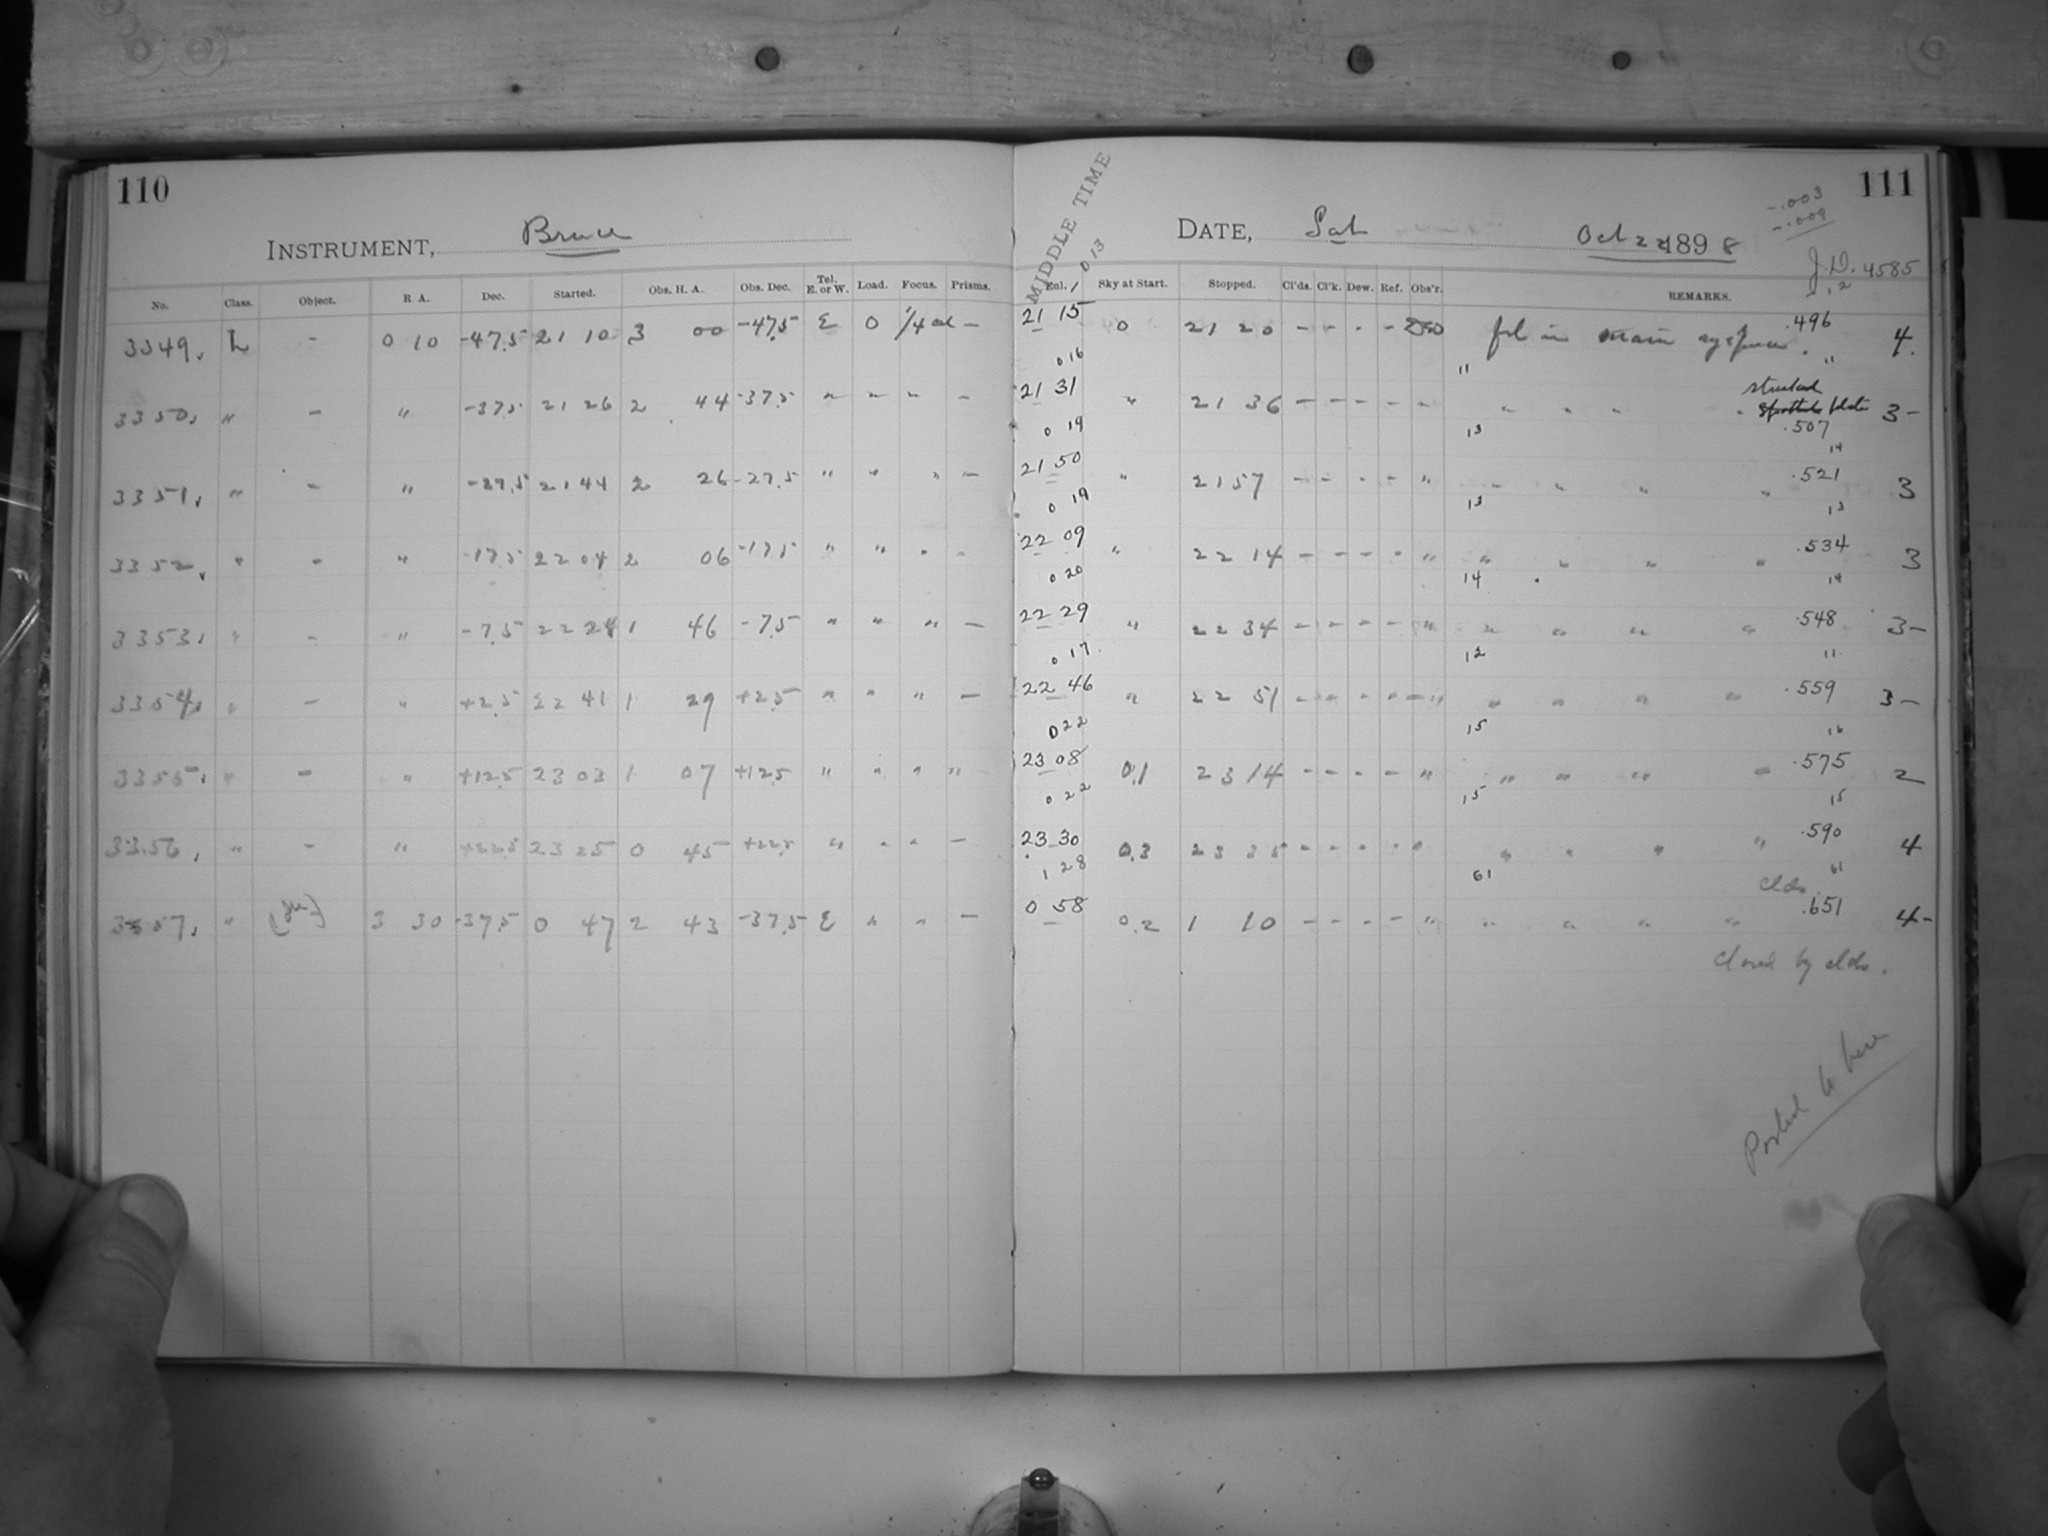 110
INSTRUMENT, Bruce
No. Class. Object. R. A. Dec. Started. Obs. H. A. Obs. Dec. Tel. E. or W. Load. Focus. Prisms.
3349. L - 0 10 -47.5 21 10 3 00 -47.5 E 0 -
3350. " - " -37.5 21 26 2 44 -37.5 " " " -
3351. " - " -27.5 21 44 2 26 -27.5 " " " -
3352. " - " -17.5 22 04 2 06 -17.5 " " " -
3353. " - " -7.5 22 24 1 46 -7.5 " " " -
3354. " - " +2.5 22 41 1 29 +2.5 " " " -
3355. " - " +12.5 23 03 1 07 +12.5 " " " "
3356. " - " +22.5 23 25 0 45 +22.5 " " " -
3357. " 3 30 -37.5 0 47 2 43 -37.5 E " " -
111
MIDDLE TIME
-.003
-.009
DATE, Sat Oct 22 1898
J.D. 4585
0 13
Exl. Sky at Start. Stopped. Cl'ds. Cl'k. Dew. Ref. Obs'r. REMARKS.
21 15 0 21 20 - - - - fol in main .496 4.
0 16 11 11
21 31 " 21 36 - - - - " " " " " streaked plate 3-
.507
0 19 13 14
21 50 " 21 57 - - - - " " " " " .521 3
0 19 13 13
22 09 " 22 14 - - - - " " " " " .534 3
0 20 14 14
22 29 " 22 34 - - - - " " " " " .548 3-
0 17 12 11
22 46 " 22 51 - - - - " " " " " .559 3-
0 22 15 16
23 08 0.1 23 14 - - - - " " " " - .575 2
0 22 15 15
23 30 0.3 23 35 - - - - " " " " " .590 4
1 28 61 61
clds.
0 58 0.2 1 10 - - - - " " " " " .651 4-
Closed by clds.
Posted to here